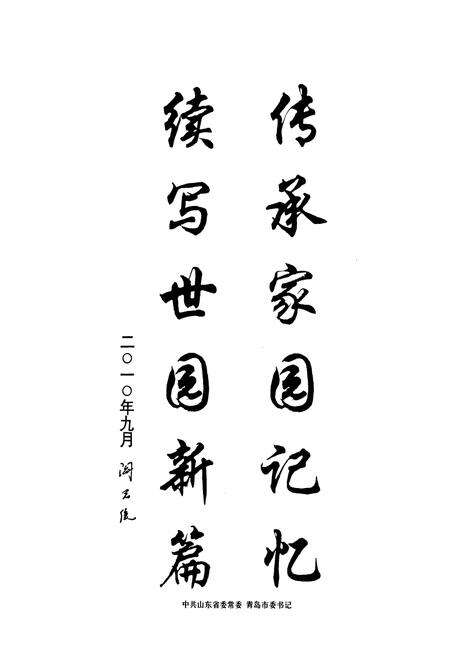 传承家园记忆
续写世园新篇
二〇一〇年九月 阎启俊
中共山东省委常委 青岛市委书记